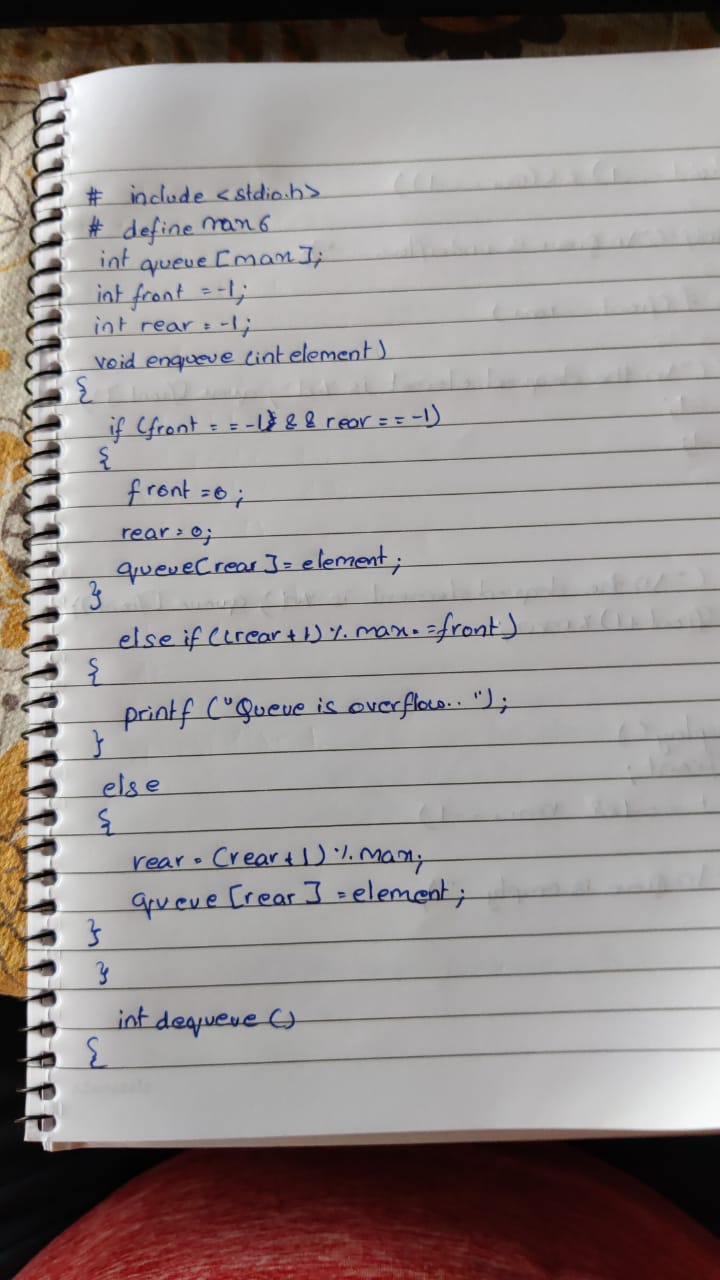 # include <stdio.h>
# define max 6
int queue [max];
int front = -1;
int rear = -1;
void enqueue (int element)
{
if (front = = -1 && rear = = -1)
{
front = 0 ;
rear = 0;
queue[rear] = element ;
}
else if ((rear + 1) % max = = front)
{
printf ("Queue is overflow.. ") ;
}
else
{
rear = (rear + 1) % max;
queue [rear] = element ;
}
}
int dequeue ()
{